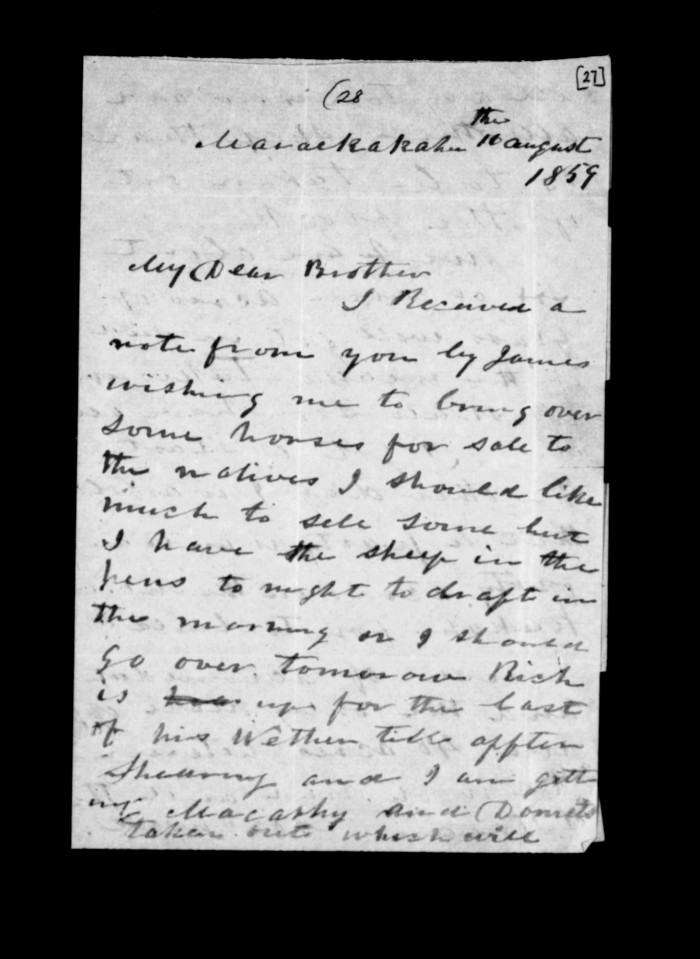 [27]
(28
Maraekakaho 16 the august
1859
My Dear Brother
I Received a
note from you by James
wishing me to bring over
some horses for sale to
the natives I should like
much to sele some but
I have the sheep in the
pens to night to draft in
the morning or I should
go over tomorow Rich
is up for the last
of his Wether tell affter
Shearing and I am gett
ing Macathy and Donets
taken out which will